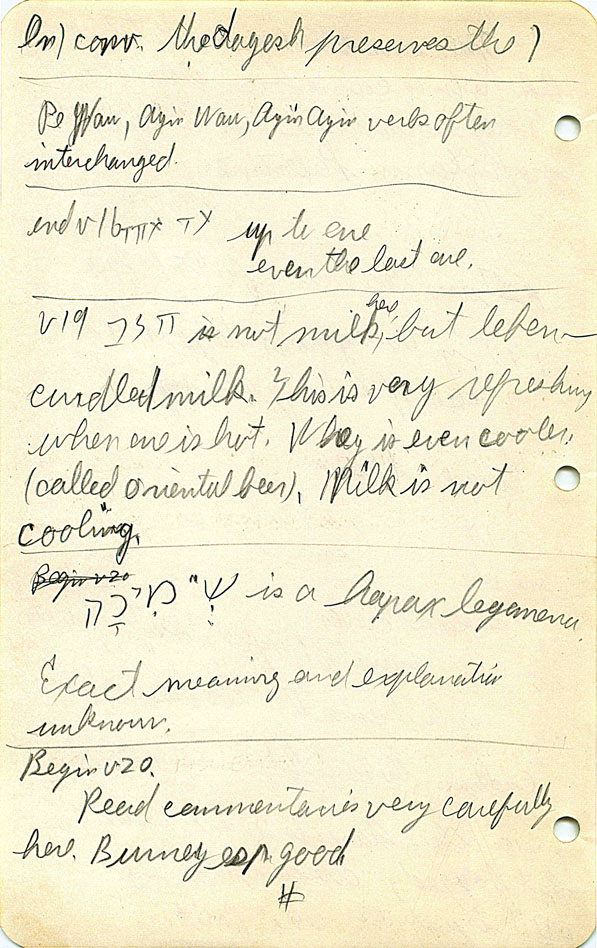 In ו conv. the dagesh preserves the ו
Pe Wau, Ayin Wau, Ayin Ayin verbs often
interchanged.
end v 16 עד אחד up to one
even the last one.
v 19 חלב is not milk here, but leben
curdled milk. This is very refreshing
when one is hot. Whey is even cooler.
(called oriental beer). Milk is not
cooling.
Begin v 20
שְׂמִיכָה is a hapax legomena.
Exact meaning and explanation
unknown.
Begin v 20.
Read commentaries very carefully
here. Burney esp. good
#